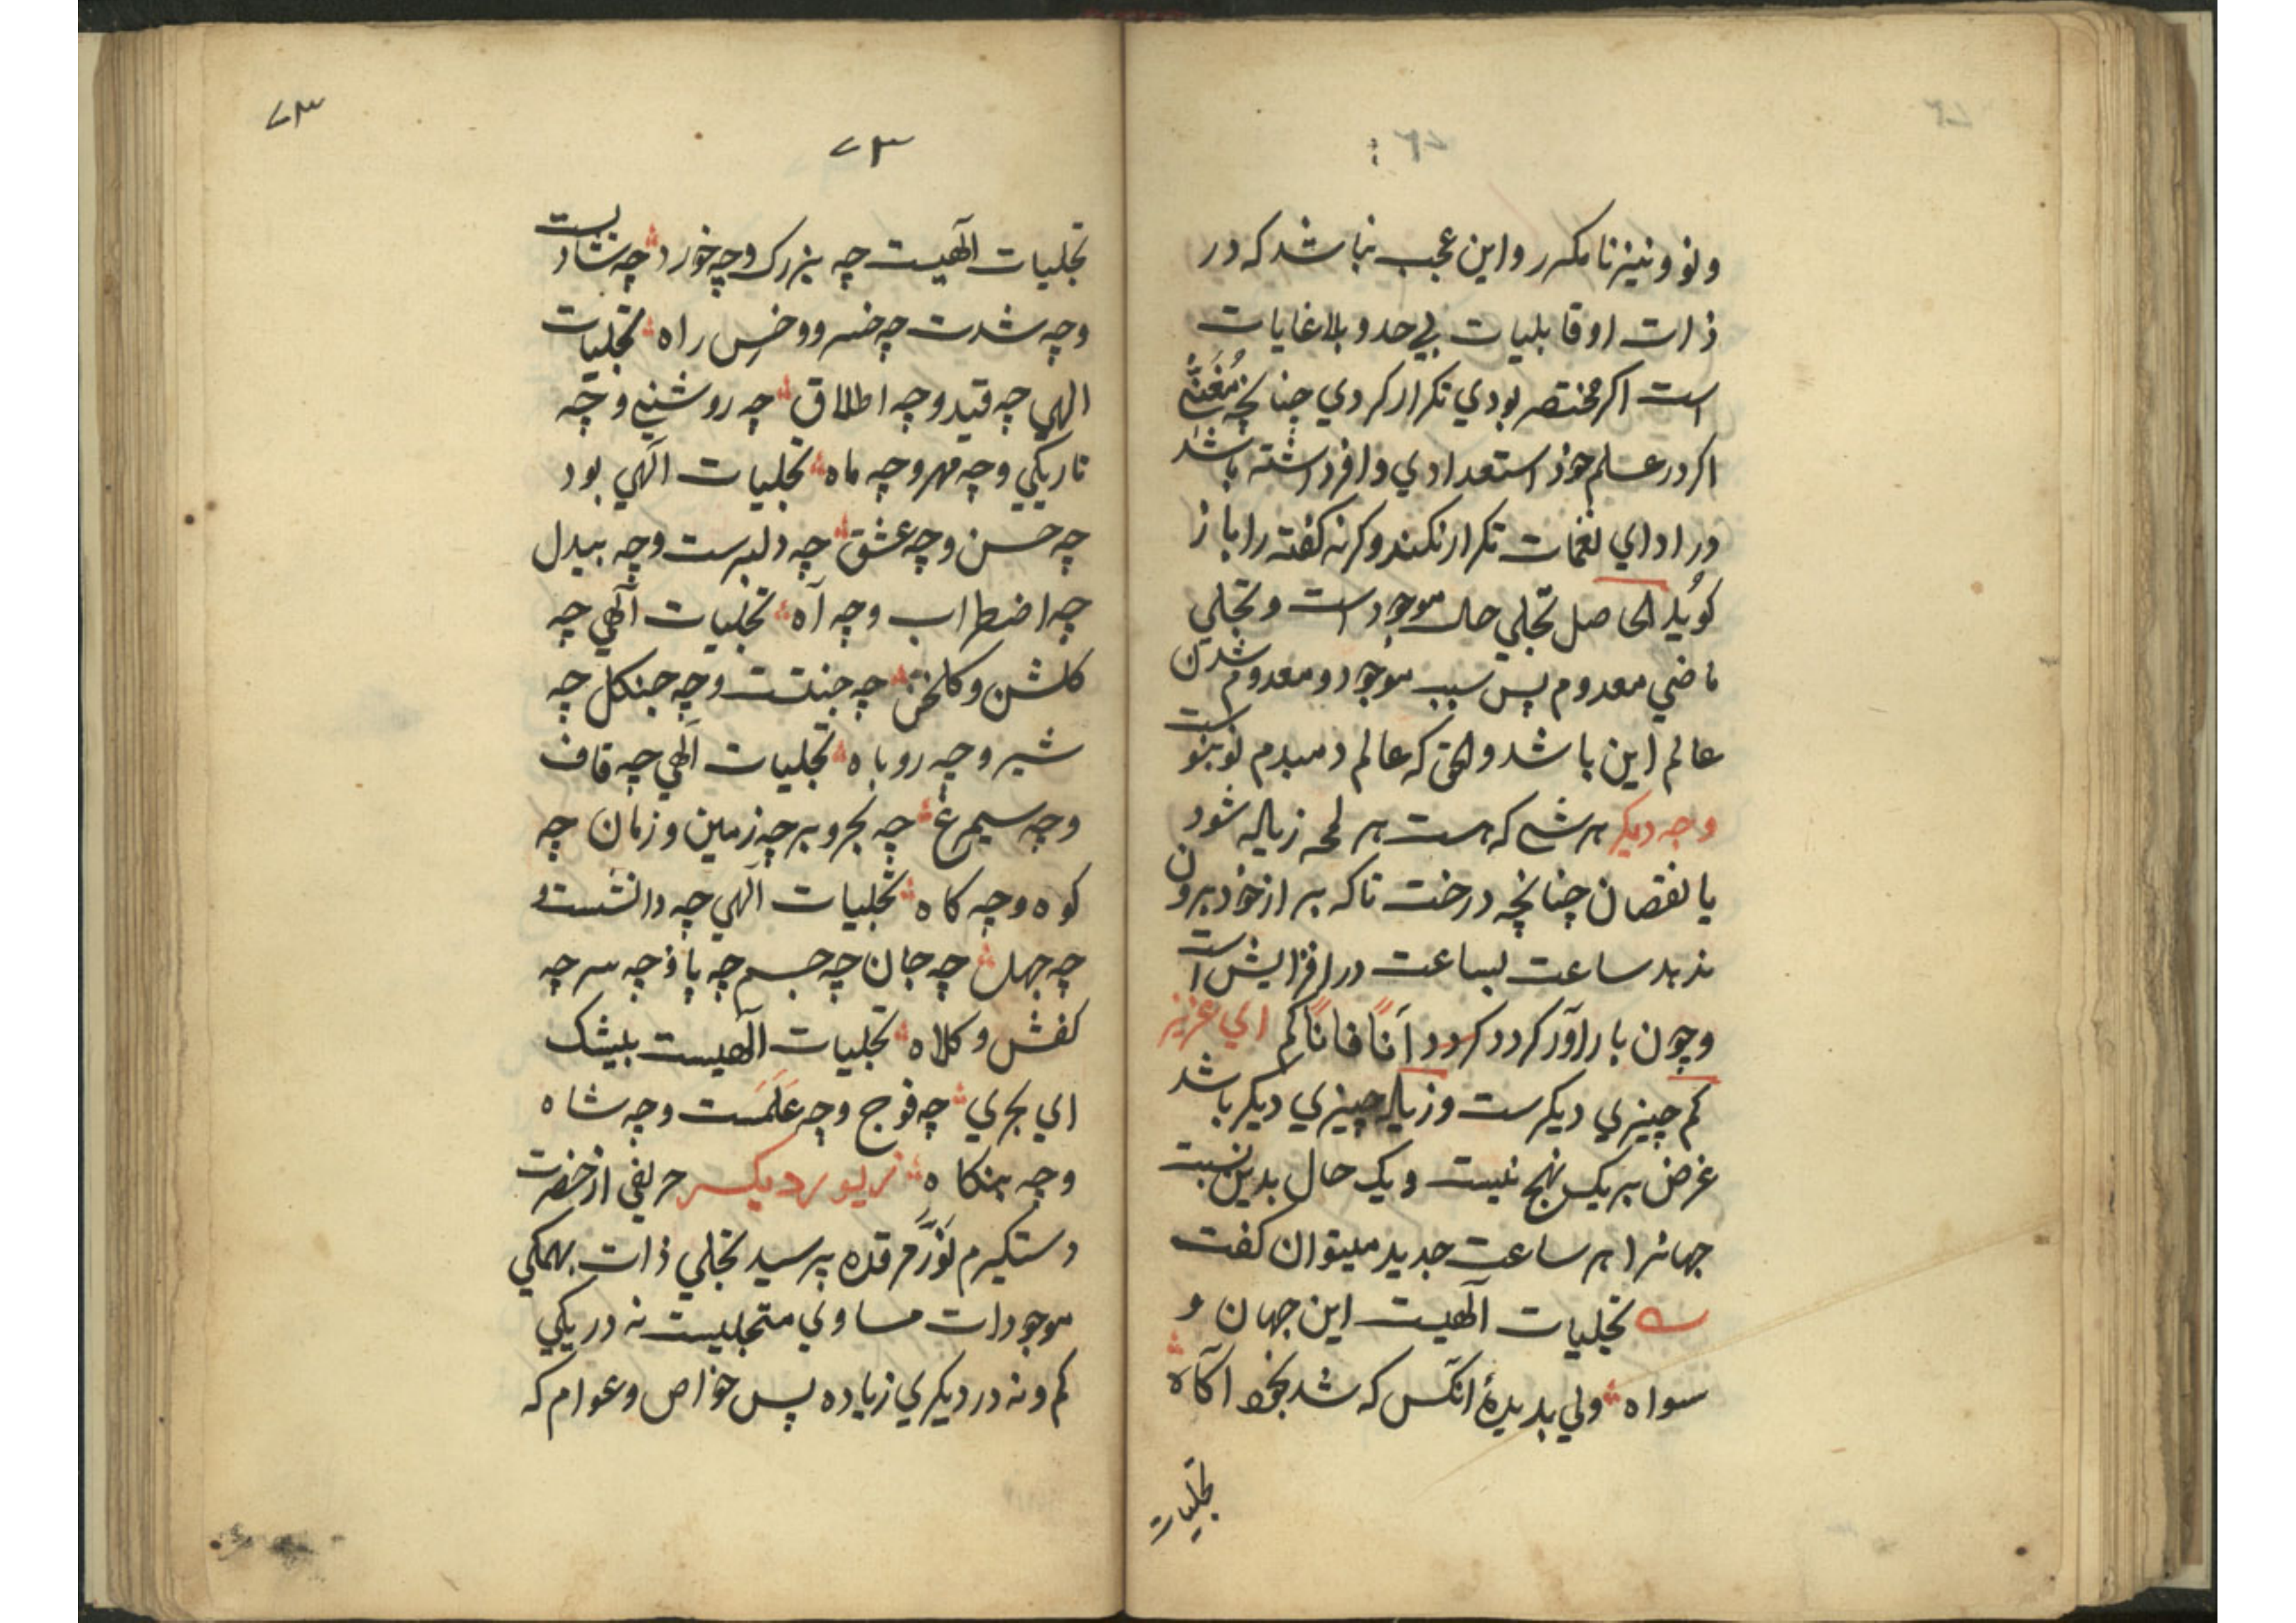 ونو و نیز نا مکرر و این عجب نباشد که در
ذات او قابلیات بی حد و بلا غایات
است اکر مختصر بودي تکرار کردي چنانچه مُغَنّي
اکر در علم خود استعدادي وافر داشته باشد
در اداي نغمات تکرار نکند وکرنه کفته را باز
کوید الحاصل تجلي حال موجودست و تجلي
ماضي معدوم پس سبب موجود و معدوم شدن
عالم این باشد و الحق که عالم دمبدم نو بنوست
وجه دیکر هر شی که هست هر لمحه زیاله شود
یا نقصان چنانچه درخت تا که بر از خود برون
ندهد ساعت بساعت در افزایش است
و چون بار آور کردد کردد آنًا فانًا کم اي عزیز
کم چیزي دیکرست و زیاله چیزي دیکر باشد
غرض بر یک نهج نیست و یک حال بدین نسبت
جهانرا هر ساعت جدید میتوان کفت
تجلیات الهیست این جهان و
سواه ولي بدیدهٔ انکس که شد بخود آکاه
تجلیات
۷۳
۷۳
تجلیات الهیست چه بزرک و چه خورد چه شادیست
و چه شدت چه خسرو و خس راه تجلیات
الهي چه قید و چه اطلاق چه روشني و چه
تاریکي و چه مهر و چه ماه تجلیات الهي بود
چه حسن و چه عشق چه دلبرست و چه بیدل
چه اضطراب و چه آه تجلیات الهي چه
کلشن و کلخن چه جنتت و چه جنکل چه
شیر و چه روباه تجلیات الهي چه قاف
و چه سیمرغ چه بحر و بر چه زمین و زمان چه
کوه و چه کاه تجلیات الهي چه دانشست و
چه جهل چه جان چه جسم چه پا و چه سر چه
کفش و کلاه تجلیات الهیست بیشک
اي بحري چه فوج و چه عَلَمَست و چه شاه
و چه بنکاه زیور دیکر حریفي از حضرت
دستکیرم نَوَّرَ مرقده پرسید تجلي ذات بهمکي
موجودات مساوي متجلیست نه در یکي
کم و نه در دیکري زیاده پس خواص و عوام که